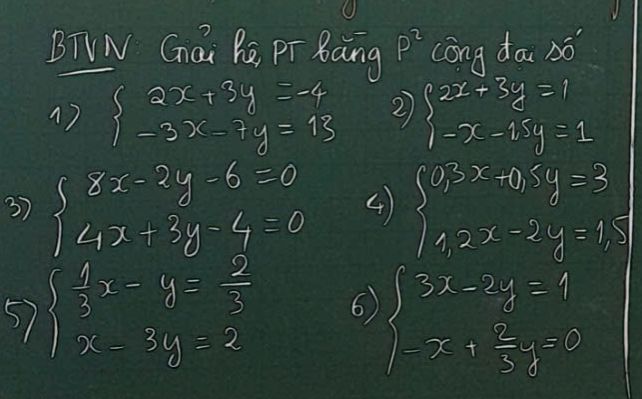 BTVN: Giải hệ PT bằng P² cộng đại số
1) { 2x + 3y = -4
-3x - 7y = 13
2) { 2x + 3y = 1
-x - 1,5y = 1
3) { 8x - 2y - 6 = 0
4x + 3y - 4 = 0
4) { 0,3x + 0,5y = 3
1,2x - 2y = 1,5
5) { 1/3 x - y = 2/3
x - 3y = 2
6) { 3x - 2y = 1
-x + 2/3 y = 0